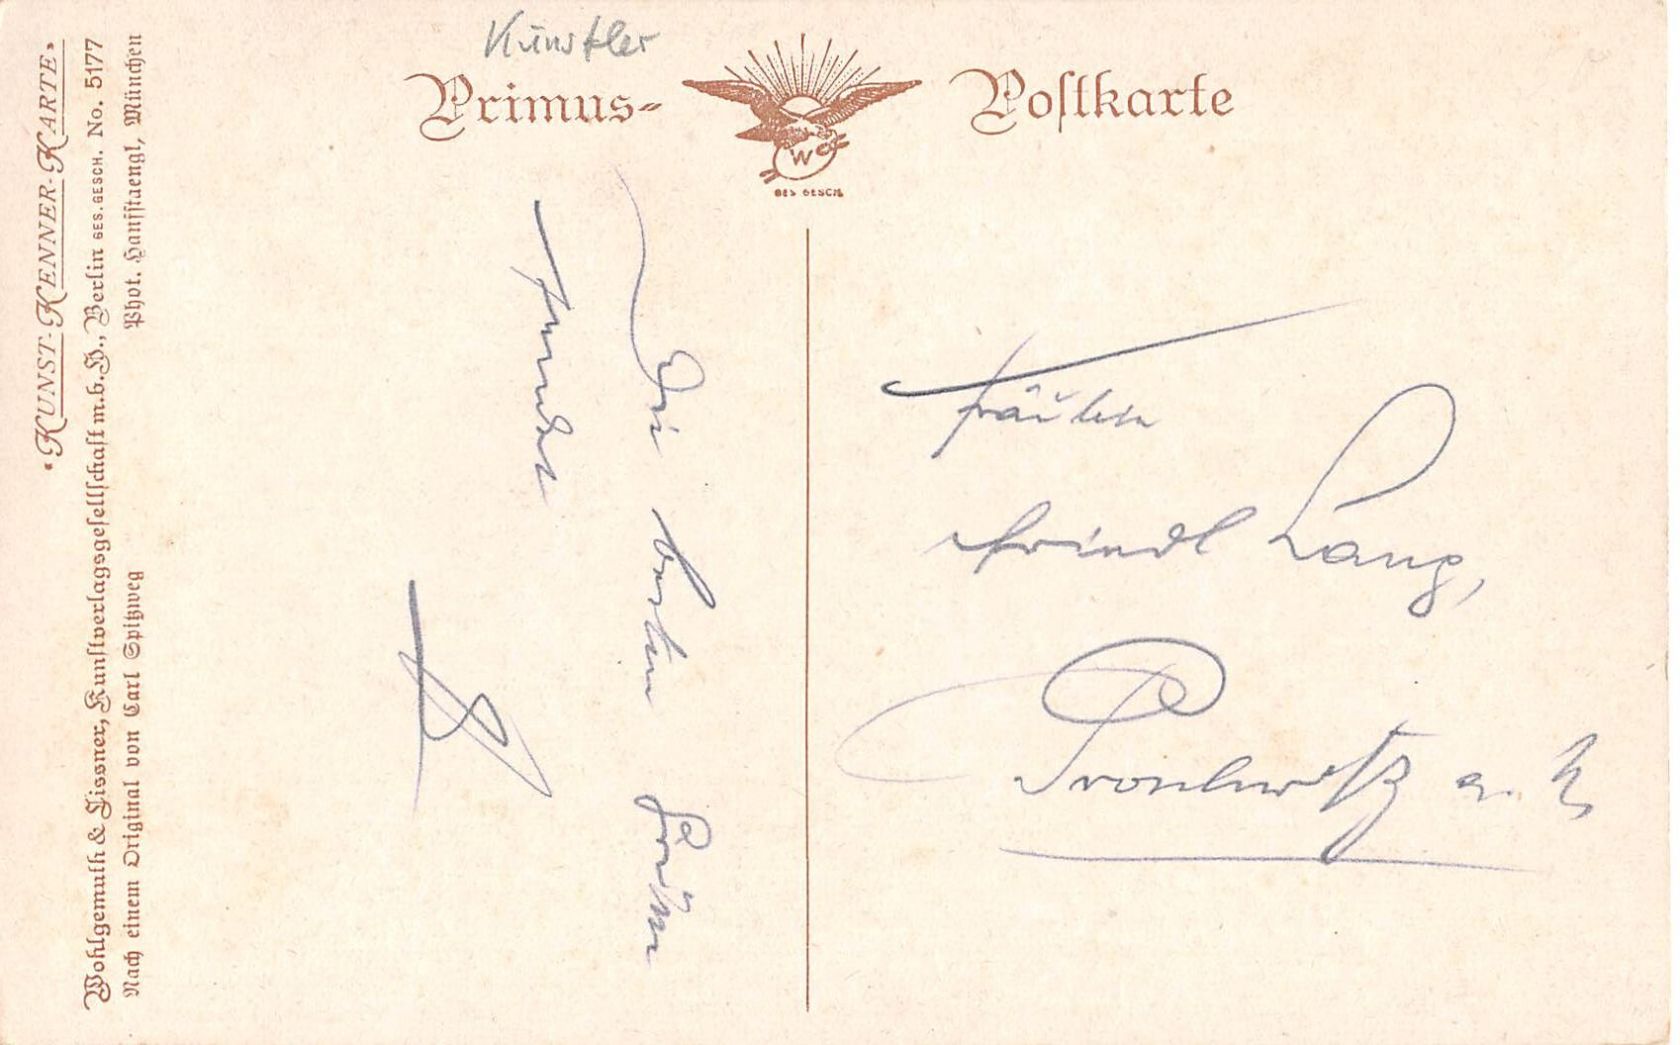 Künstler
Primus- Postkarte
W
GES. GESCH.
•KUNST-KENNER-KARTE•
Wohlgemuth & Lissner, Kunstverlagsgesellschaft m.b.H., Berlin GES.GESCH. No. 5177
Nach einem Original von Carl Spitzweg Phot. Hanfstaengl, München
Die besten Grüsse
sendet
Fräulein
Friedl Lang,